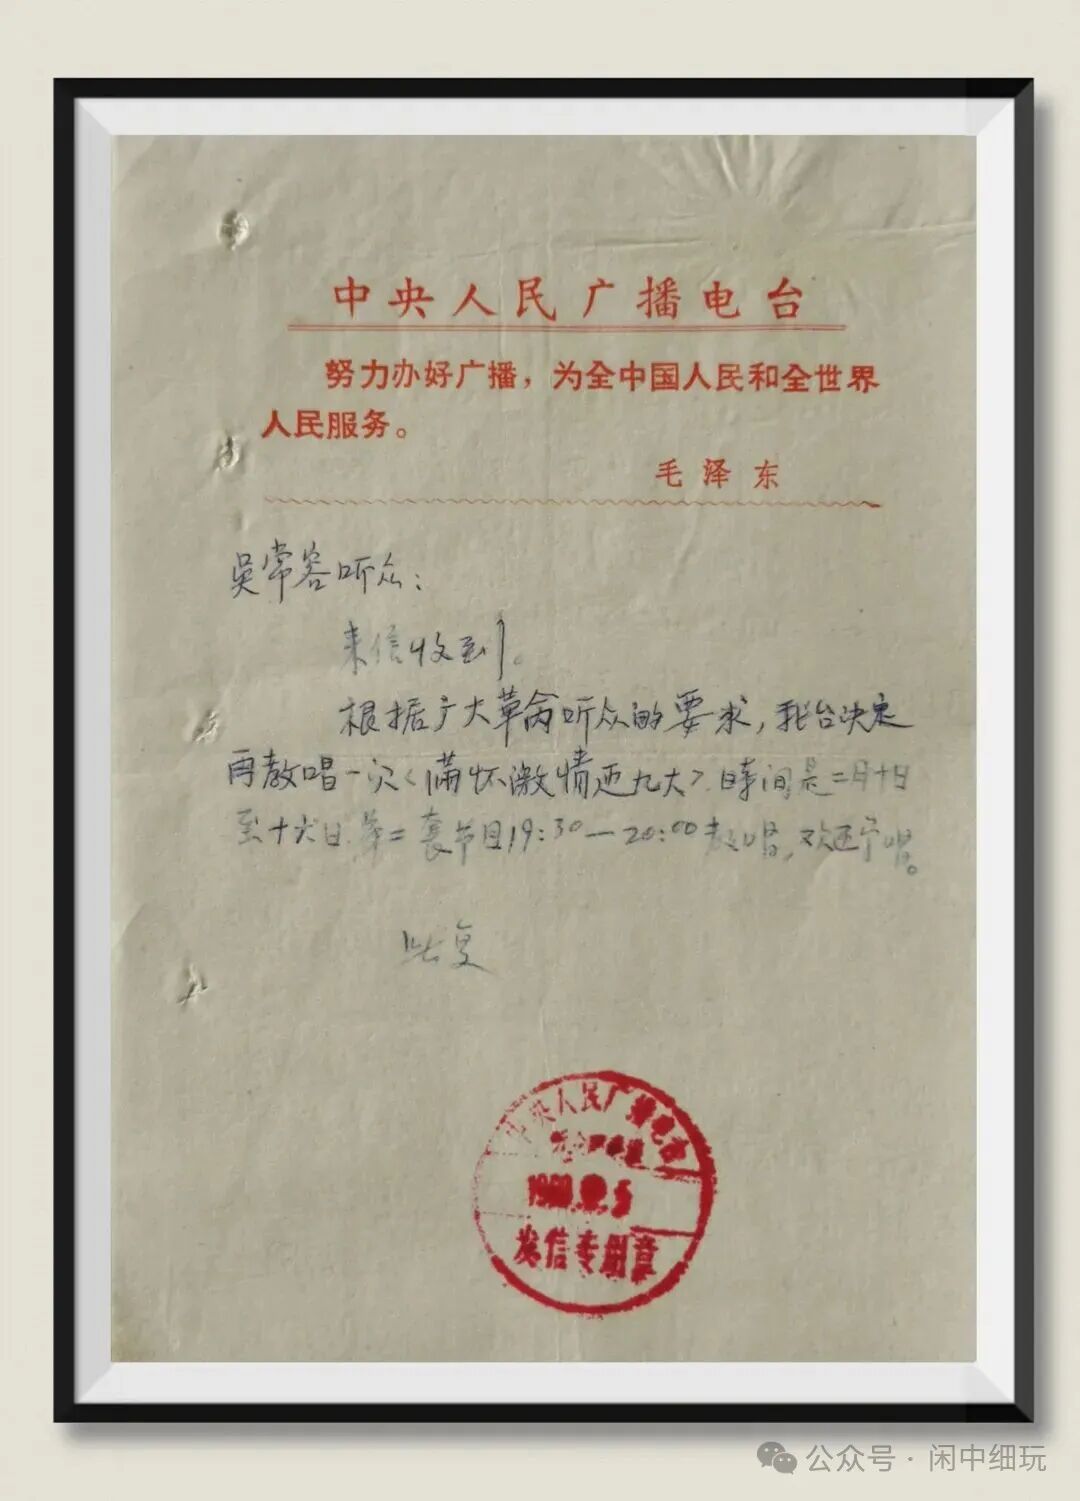 中央人民广播电台
努力办好广播，为全中国人民和全世界
人民服务。
毛泽东
吳常容听众：
来信收到。
根据广大革命听众的要求，我台决定
再教唱一次〈满怀激情迎九大〉时间是二月十日
至十六日第二套节目19:30—20:00教唱，欢迎学唱。
此复
中央人民广播电台
发信专用章
公众号·闲中细玩